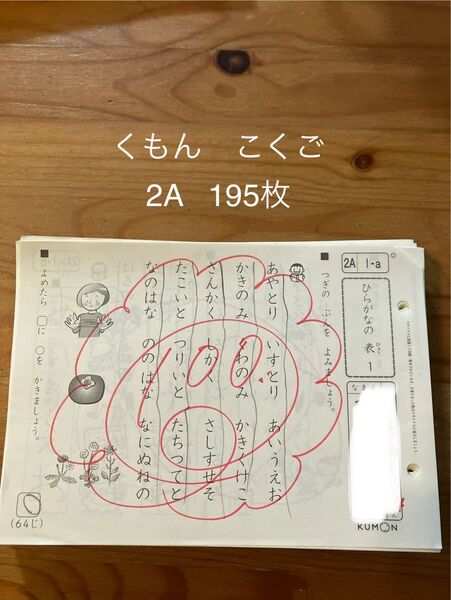 くもん　こくご
2A　195枚
2A 1・a
ひらがなの 表 1
ひょう
■ つぎの ぶんを よみましょう。
あやとり いすとり あいうえお
かきのみ くわのみ かきくけこ
さんかく しかく さしすせそ
たこいと つりいと たちつてと
なのはな ののはな なにぬねの
■ よめたら □に ○を かきましょう。
(64じ)
100
KUMON